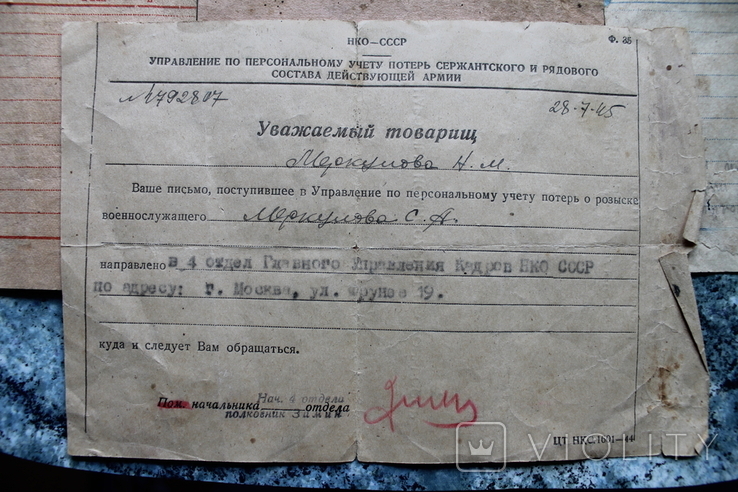 НКО—СССР
Ф. 36
УПРАВЛЕНИЕ ПО ПЕРСОНАЛЬНОМУ УЧЕТУ ПОТЕРЬ СЕРЖАНТСКОГО И РЯДОВОГО
СОСТАВА ДЕЙСТВУЮЩЕЙ АРМИИ
№792807
28-7-45
Уважаемый товарищ
Меркулова Н. М.
Ваше письмо, поступившее в Управление по персональному учету потерь о розыске
военнослужащего Меркулова С. А.
направлено в 4 отдел Главного Управления Кадров НКО СССР
по адресу: г. Москва, ул. Фрунзе 19.
куда и следует Вам обращаться.
Нач. 4 отдела
Пом. начальника отдела
полковник Зимин
ЦТ НКО
VIOLITY